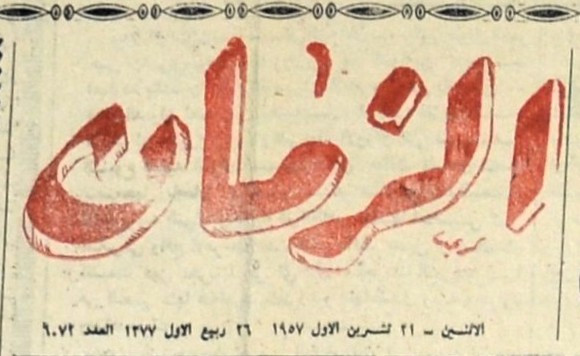 الزمان
كريم
الاثنين - ٢١ تشرين الاول ١٩٥٧ ٢٦ ربيع الاول ١٣٧٧ العدد ٦٠٧٢